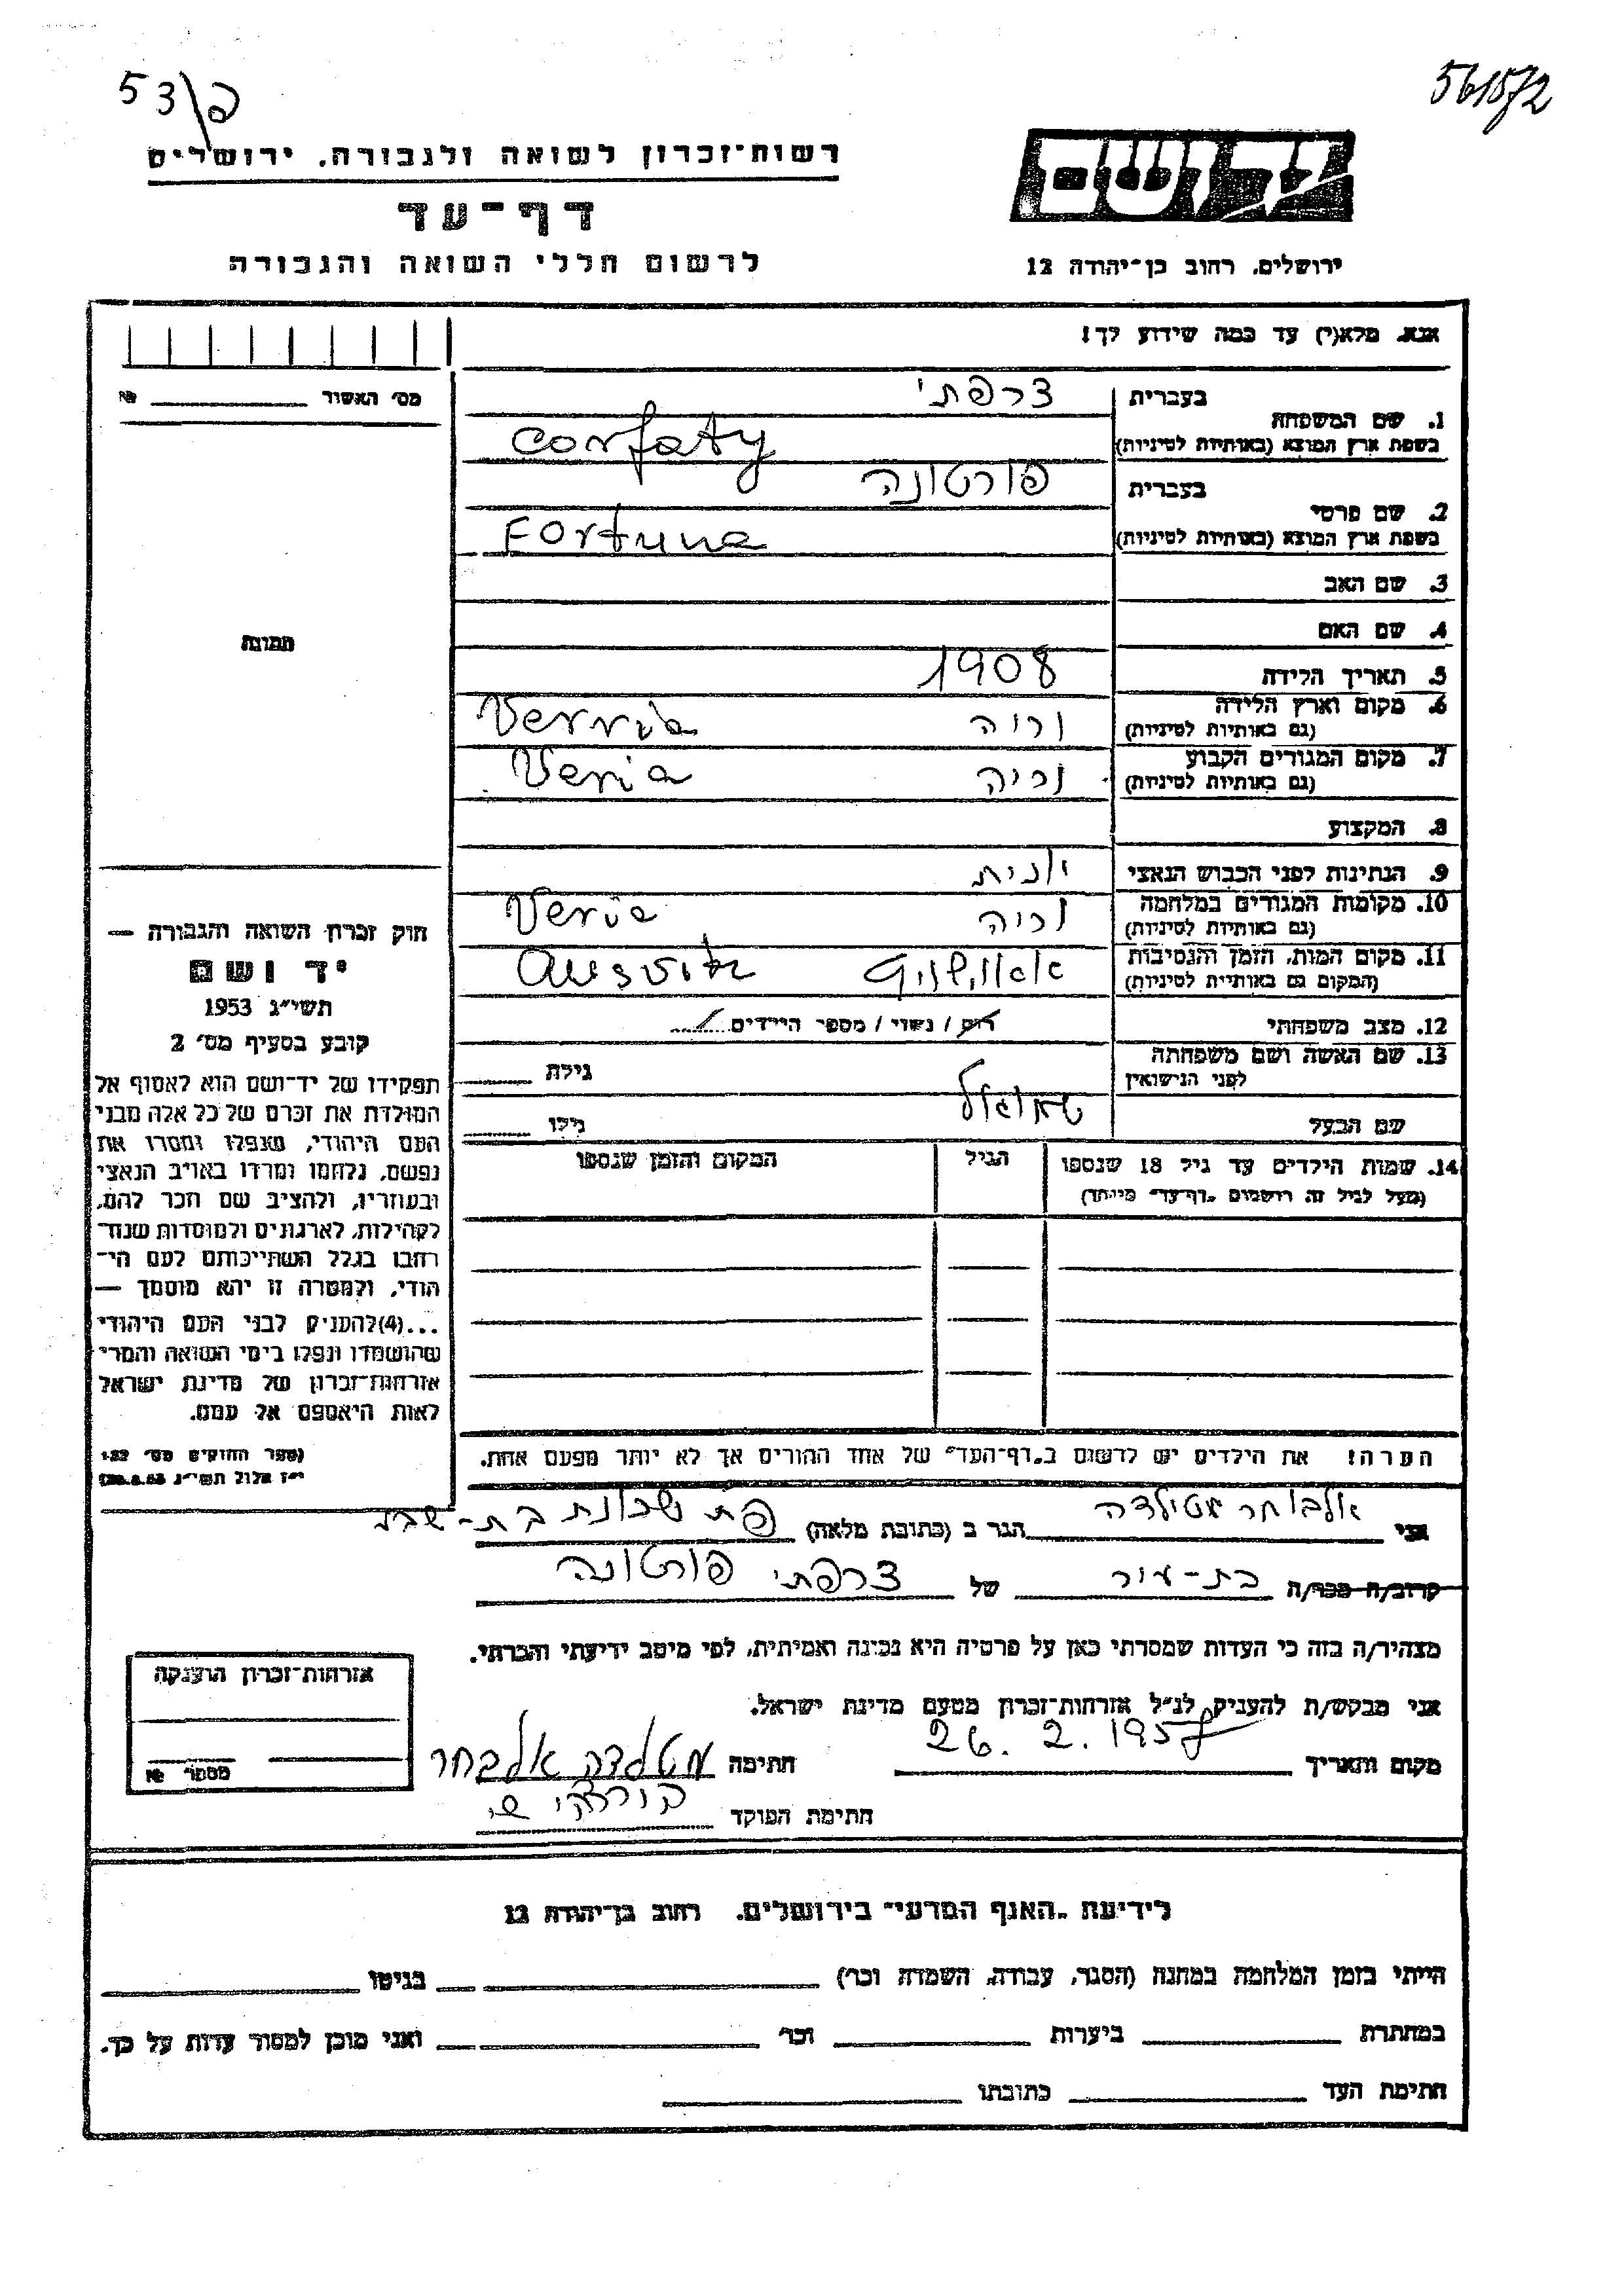 53\פ
561572
רשות־זכרון לשואה ולגבורה, ירושלים
יד ושם
דף־עד
לרשום חללי השואה והגבורה
ירושלים, רחוב בן־יהודה 12
אנא, מלא(י) עד כמה שידוע לך!
מס׳ האשור № ______
1. שם המשפחה בעברית צרפתי
בשפת ארץ המוצא (באותיות לטיניות) corfaty
2. שם פרטי בעברית פורטונה
בשפת ארץ המוצא (באותיות לטיניות) Fortuna
3. שם האב
4. שם האם
תמונה
5. תאריך הלידה 1908
6. מקום וארץ הלידה
(גם באותיות לטיניות) וריה Verria
7. מקום המגורים הקבוע
(גם באותיות לטיניות) וריה Veria
8. המקצוע
9. הנתינות לפני הכבוש הנאצי יונית
10. מקומות המגורים במלחמה
(גם באותיות לטיניות) וריה Veria
11. מקום המות, הזמן והנסיבות
(המקום גם באותיות לטיניות) אאושויץ Ausvitz
12. מצב משפחתי רוק / נשוי / מספר הילדים
13. שם האשה ושם משפחתה
לפני הנישואין גילה
שם הבעל שמואל גילו
14. שמות הילדים עד גיל 18 שנספו הגיל המקום והזמן שנספו
(מעל לגיל זה רושמים „דף־עד״ מיוחד)
הערה: את הילדים יש לרשום ב„דף־העד״ של אחד ההורים אך לא יותר מפעם אחת.
חוק זכרון השואה והגבורה —
יד ושם
תשי״ג 1953
קובע בסעיף מס׳ 2
תפקידו של יד־ושם הוא לאסוף אל
המולדת את זכרם של כל אלה מבני
העם היהודי, שנפלו ומסרו את
נפשם, נלחמו ומרדו באויב הנאצי
ובעוזריו, ולהציב שם וזכר להם,
לקהילות, לארגונים ולמוסדות שנח־
רבו בגלל השתייכותם לעם הי־
הודי, ולמטרה זו יהא מוסמך —
...(4)להעניק לבני העם היהודי
שהושמדו ונפלו בימי השואה והמרי
אזרחות־זכרון של מדינת ישראל
לאות היאספם אל עמם.
(ספר החוקים מס׳ 132
י״ז אלול תשי״ג 28.8.53)
אני אלבוחר מטילדה הגר ב (כתובת מלאה) פת שכונת בת-שבע
קרוב/ה מכר/ה בת-עיר של צרפתי פורטונה
מצהיר/ה בזה כי העדות שמסרתי כאן על פרטיה היא נכונה ואמיתית, לפי מיטב ידיעתי והכרתי.
אני מבקש/ת להעניק לנ״ל אזרחות־זכרון מטעם מדינת ישראל.
מקום ותאריך 26.2.1957 חתימה מטלדה אלבחר
חתימת הפוקד
אזרחות־זכרון הוענקה
מספר №
לידיעת „האגף המדעי״ בירושלים, רחוב בן־יהודה 12
הייתי בזמן המלחמה במחנה (הסגר, עבודה, השמדה וכו׳) ______ בגיטו ______
במחתרת ______ ביערות ______ וכו׳ ______ ואני מוכן למסור עדות על כך.
חתימת העד ______ כתובתו ______